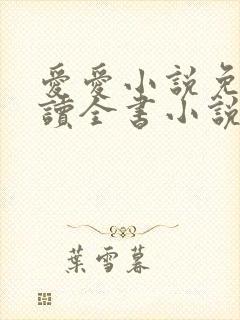 愛愛小說免
讀全書小說
葉雪暮